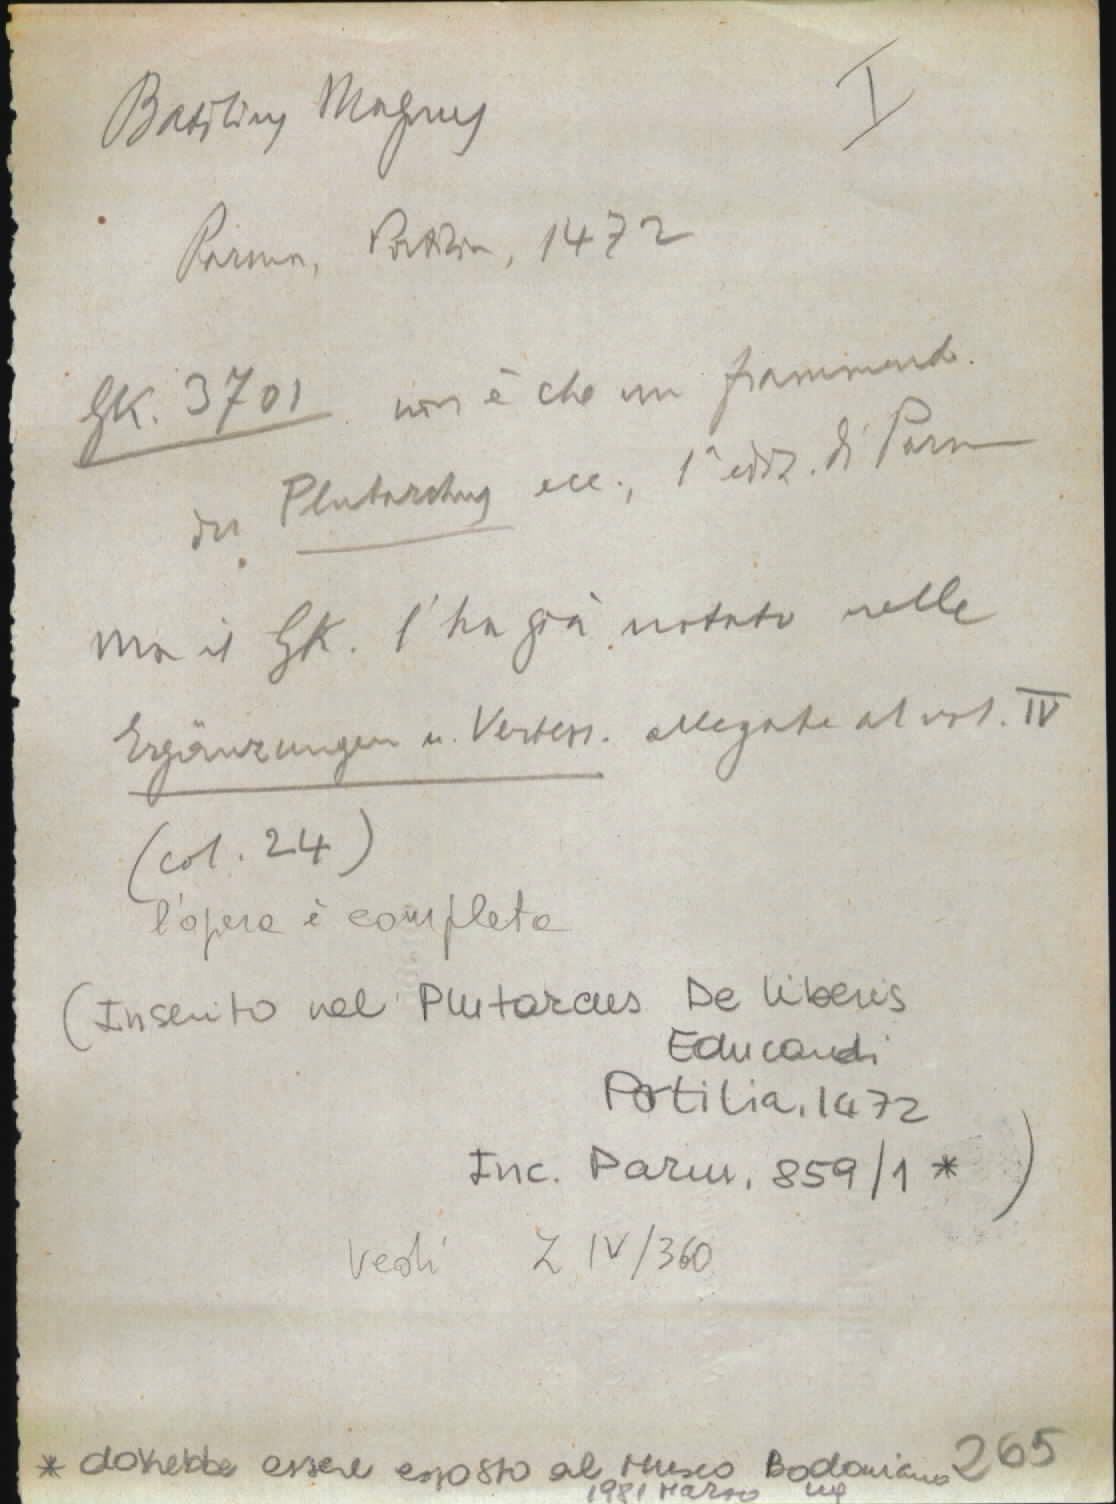 Basilius Magnus
I
Parma, Portilia, 1472
GK. 3701 non è che un frammento
du Plutarchus ecc., 1ª ediz. di Parma
ma il GK. l'ha già notato nelle
Ergänzungen u. Verbess. allegate al vol. IV
(col. 24)
l'opera è completa
(Inserito nel Plutarcus De liberis
Educandi
Portilia. 1472
Inc. Parm. 859/1 *)
Vedi Z IV/360
* dovrebbe essere esposto al Museo Bodoniano
1981 Marzo
265